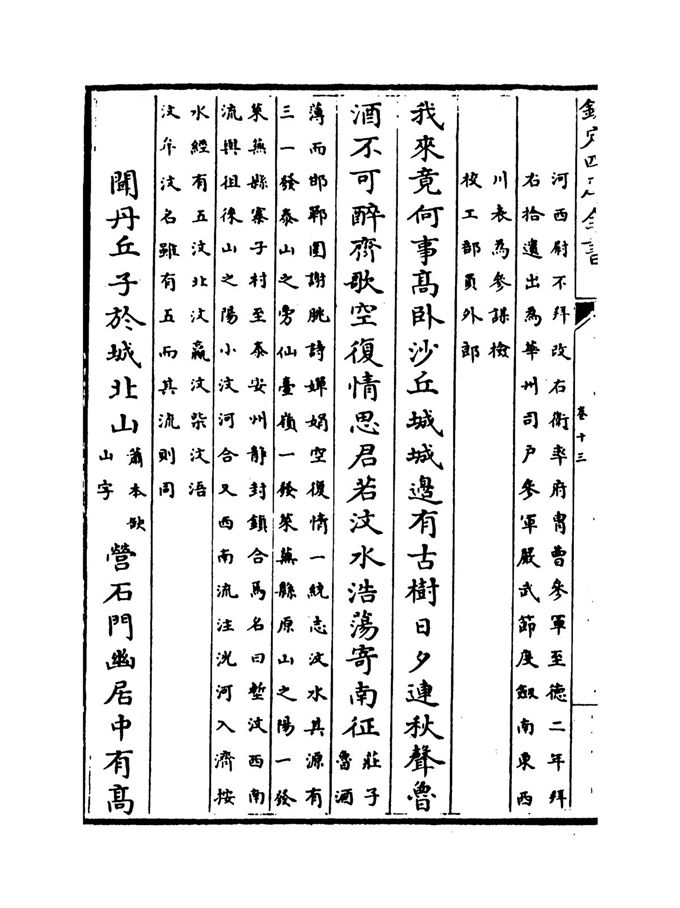 欽定四庫全書
卷十三
河西尉不拜改右衛率府胄曹參軍至德二年拜
右拾遺出為華州司戶參軍嚴武節度劔南東西
川表為參謀檢
校工部員外郎
我來竟何事高臥沙丘城城邊有古樹日夕連秋聲魯
酒不可醉齊歌空復情思君若汶水浩蕩寄南征莊子
魯酒
薄而邯鄲圍謝朓詩嬋娟空復情一統志汶水其源有
三一發泰山之旁仙臺嶺一發萊蕪縣原山之陽一發
萊蕪縣寨子村至泰安州靜封鎮合焉名曰塹汶西南
流與徂徠山之陽小汶河合又西南流注洸河入濟按
水經有五汶北汶嬴汶柴汶浯
汶牟汶名雖有五而其流則同
聞丹丘子於城北山蕭本缺
山字營石門幽居中有高